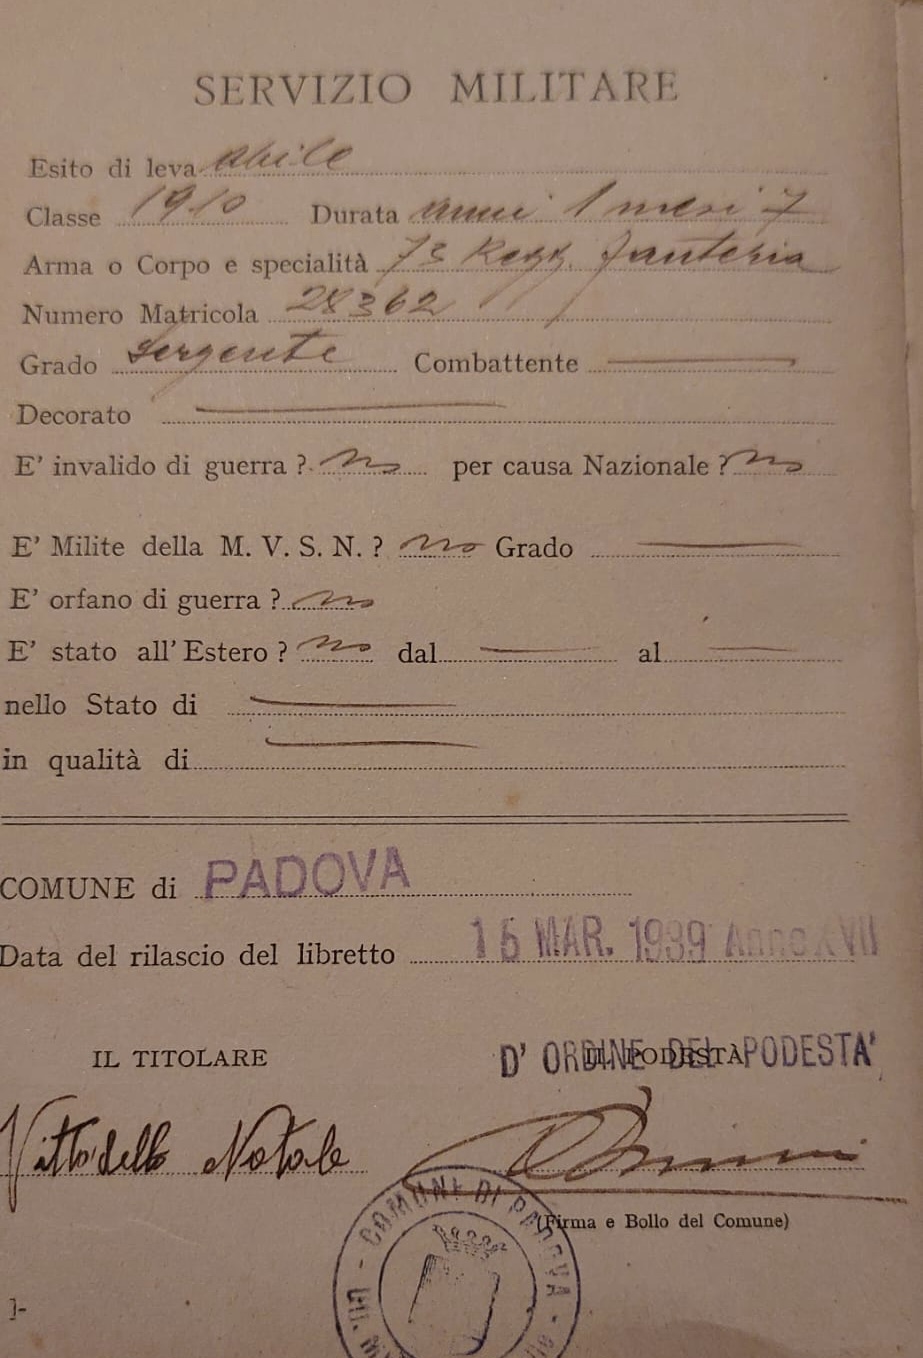 SERVIZIO MILITARE
Esito di leva abile
Classe 1910 Durata anni 1 mesi 7
Arma o Corpo e specialità 73 Regg. fanteria
Numero Matricola 28362
Grado Sergente Combattente
Decorato
E' invalido di guerra ? no per causa Nazionale ? no
E' Milite della M. V. S. N. ? no Grado
E' orfano di guerra ? no
E' stato all'Estero ? no dal al
nello Stato di
in qualità di
COMUNE di PADOVA
Data del rilascio del libretto 16 MAR. 1939 Anno XVII
IL TITOLARE IL PODESTÀ
D' ORDINE DEL PODESTA'
Vittadello Natale
(Firma e Bollo del Comune)
COMUNE DI PADOVA